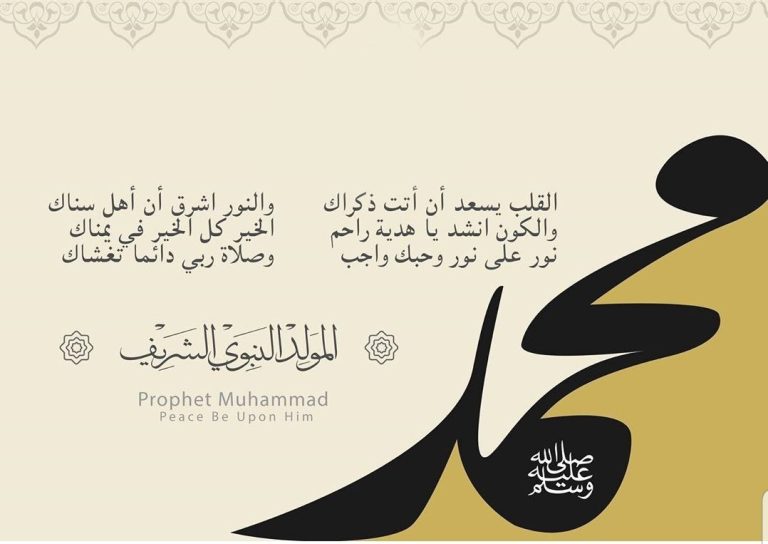 القلب يسعد أن أتت ذكراك والنور اشرق أن أهل سناك
والكون انشد يا هدية راحم الخير كل الخير في يمناك
نور على نور وحبك واجب وصلاة ربي دائما تغشاك
المَولِد النَبَوي الشَريف
Prophet Muhammad
Peace Be Upon Him
محمد
صلى الله
عليه
وسلم